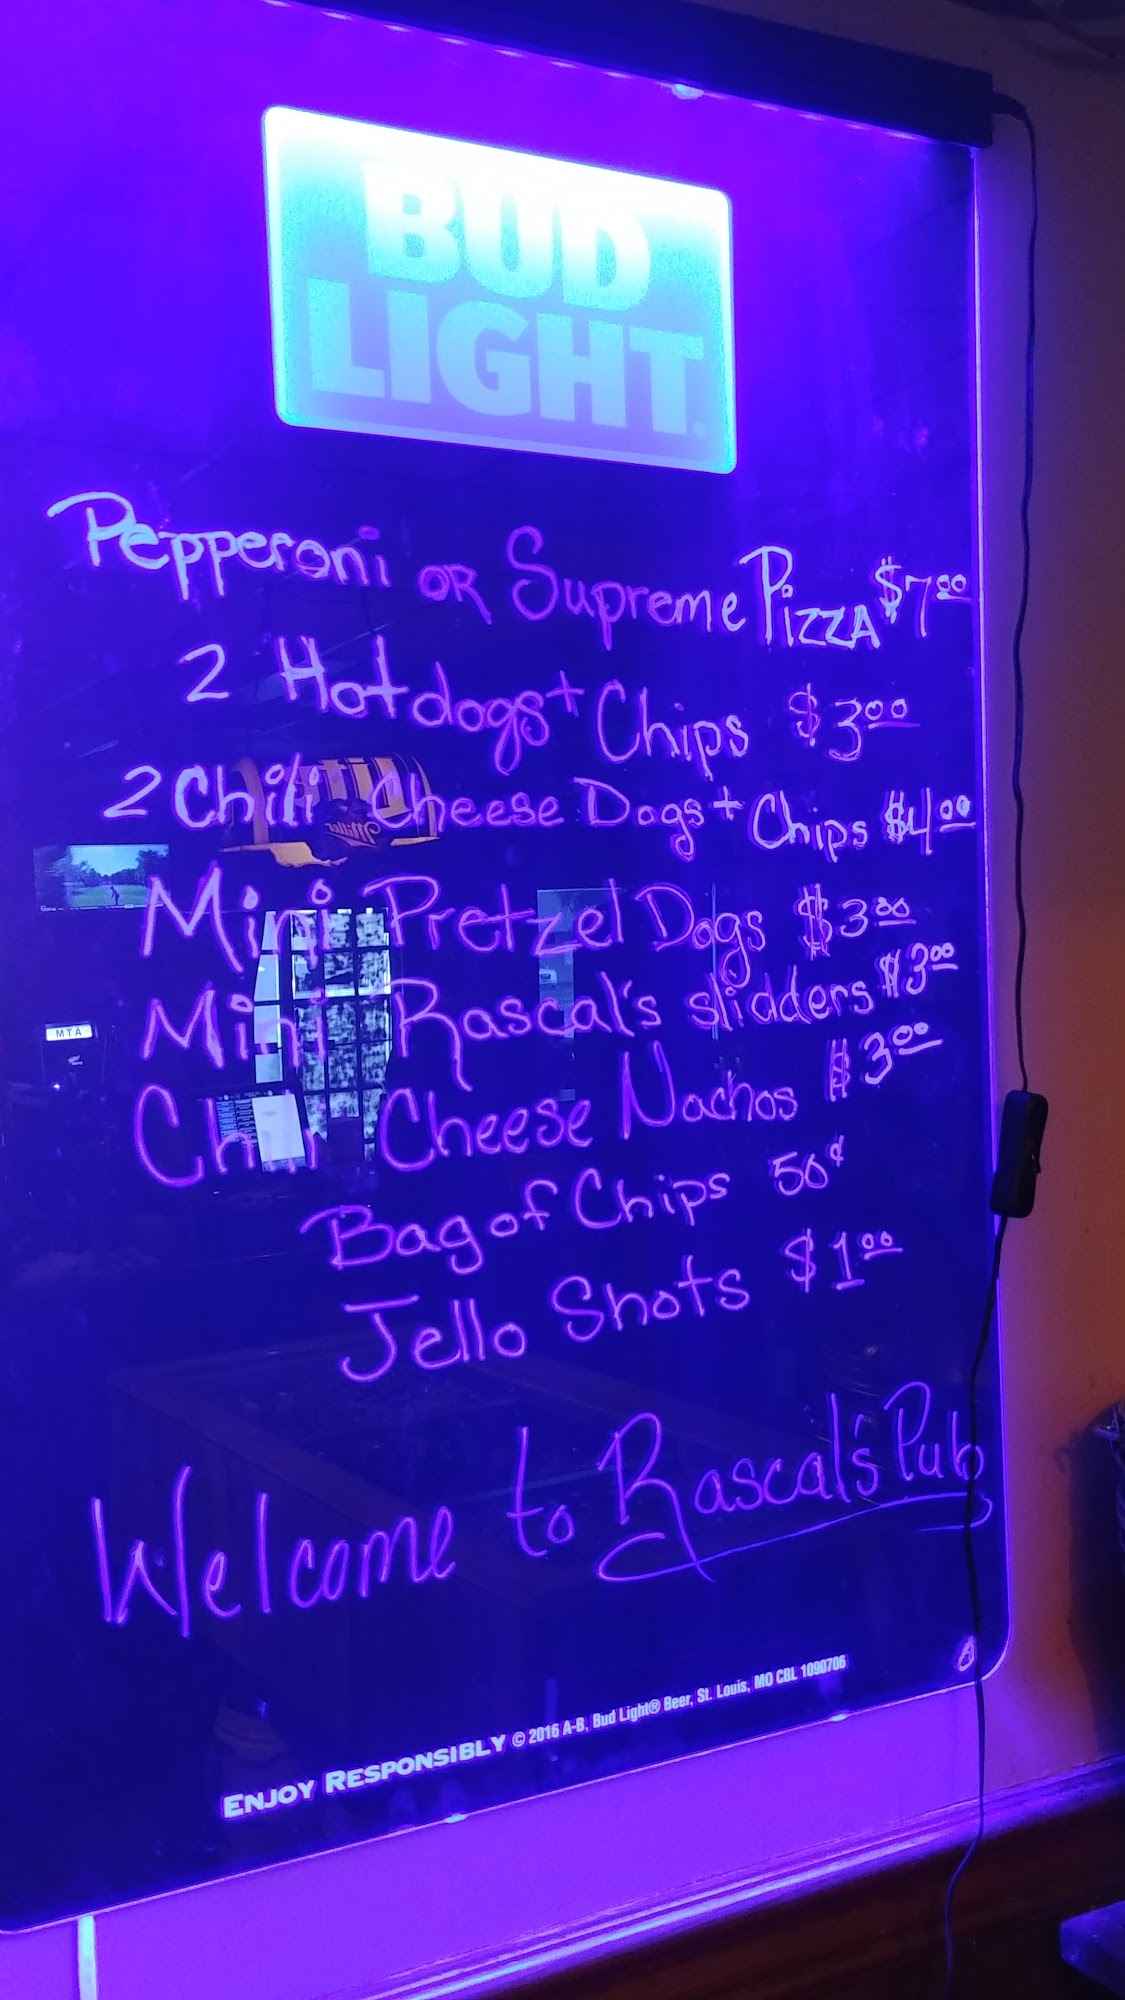 BUD
LIGHT.
Pepperoni OR Supreme PIZZA $7.00
2 Hotdogs + Chips $3.00
2 Chili Cheese Dogs + Chips $4.00
Mini Pretzel Dogs $3.00
Mini Rascal's slidders $3.00
Chili Cheese Nachos $3.00
Bag of Chips 50¢
Jello Shots $1.00
Welcome to Rascal's Pub
ENJOY RESPONSIBLY © 2016 A-B, Bud Light® Beer, St. Louis, MO CBL 1090706
MTA
Miller